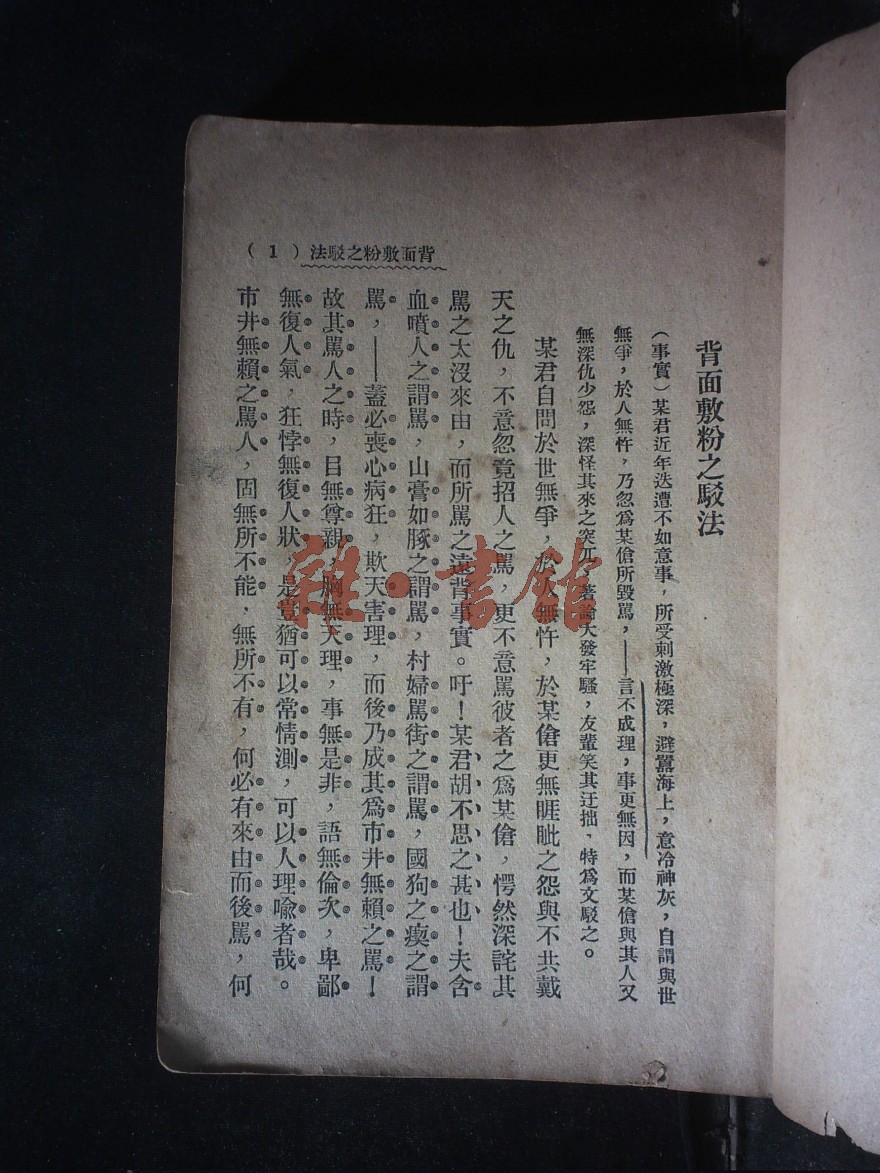 背面敷粉之駁法
（事實）某君近年迭遭不如意事，所受刺激極深，避囂海上，意冷神灰，自謂與世
無爭，於人無忤，乃忽爲某傖所毀罵，——言不成理，事更無因，而某傖與其人又
無深仇少怨，深怪其來之突兀，著論大發牢騷，友輩笑其迂拙、特爲文駁之。
某君自問於世無爭，於人無忤，於某傖更無睚眦之怨與不共戴
天之仇，不意忽竟招人之罵，更不意罵彼者之爲某傖，愕然深詫其
罵之太沒來由，而所罵之遠背事實。吁！某君胡不思之甚也！夫含
血噴人之謂罵，山膏如豚之謂罵，村婦罵街之謂罵，國狗之瘈之謂
罵，——蓋必喪心病狂，欺天害理，而後乃成其爲市井無賴之罵！
故其罵人之時，目無尊親，胸無天理，事無是非，語無倫次，卑鄙
無復人氣，狂悖無復人狀，是豈猶可以常情測，可以人理喻者哉。
市井無賴之罵人，固無所不能，無所不有，何必有來由而後罵，何
背面敷粉之駁法（1）
雜·書館